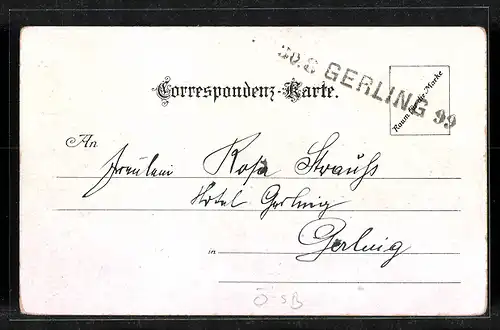 30.8 GERLING 99
Correspondenz-Karte.
Raum für die Marke
An
Fräulein Rosa Strauß
Hotel Gerling
in Gerling
ÖSB